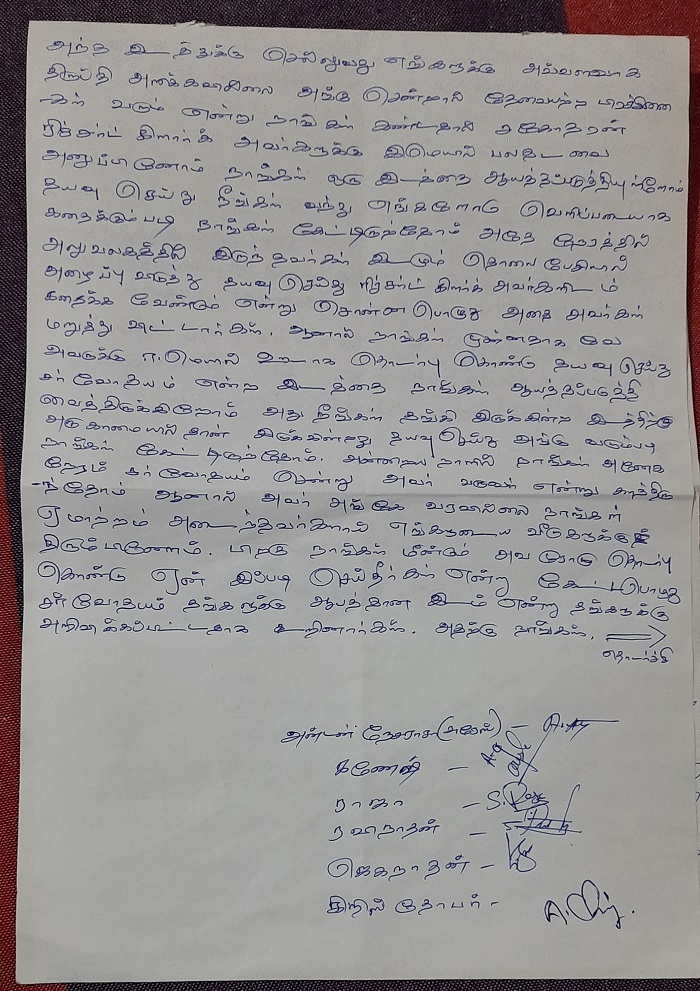 அந்த இடத்துக்கு செல்லுவது எங்களுக்கு அவ்வளவாக
திருப்தி அளிக்கவில்லை அங்கு சென்றால் தேவையற்ற பிரச்சினை
-கள் வரும் என்று நாங்கள் கண்டதால் சகோதரன்
ரிச்சர்ட் கிளார்க் அவர்களுக்கு இமெயில் பலதடவை
அனுப்பினோம் நாங்கள் ஒரு இடத்தை ஆயத்தப்படுத்தியுள்ளோம்
தயவு செய்து நீங்கள் வந்து எங்களோடு வெளிப்படையாக
கதைக்கும்படி நாங்கள் கேட்டிருந்தோம் அதே நேரத்தில்
அலுவலகத்தில் இருந்தவர்கள் இடமும் தொலைபேசியில்
அழைப்பு விடுத்து தயவு செய்து ரிச்சர்ட் கிளார்க் அவர்களிடம்
கதைக்க வேண்டும் என்று சொன்ன பொழுது அதை அவர்கள்
மறுத்து விட்டார்கள். ஆனால் நாங்கள் முன்னதாகவே
அவருக்கு ஈ.மெயில் ஊடாக தொடர்பு கொண்டு தயவு செய்து
சர்வோதயம் என்ற இடத்தை நாங்கள் ஆயத்தப்படுத்தி
வைத்திருக்கிறோம் அது நீங்கள் தங்கி இருக்கின்ற இடத்திற்கு
அருகாமையில் தான் இருக்கின்றது தயவு செய்து அங்கு வரும்படி
நாங்கள் கேட்டிருந்தோம். அன்றைய நாளில் நாங்கள் அனேக
நேரம் சர்வோதயம் சென்று அவர் வருவார் என்று காத்திரு
-ந்தோம் ஆனால் அவர் அங்கே வரவில்லை நாங்கள்
ஏமாற்றம் அடைந்தவர்களாய் எங்களுடைய வீடுகளுக்குத்
திரும்பினோம். பிறகு நாங்கள் மீண்டும் அவரோடு தொடர்பு
கொண்டு ஏன் இப்படி செய்தீர்கள் என்று கேட்டபொழுது
சர்வோதயம் தங்களுக்கு ஆபத்தான இடம் என்று தங்களுக்கு
அறிவிக்கப்பட்டதாக கூறினார்கள். அதற்கு நாங்கள்.
தொடர்ச்சி
அன்டன் -
கணேஷ் -
ராஜா - S. Raja
ரவிநாதன் -
ஜெகநாதன் -
கிறிஸ்தோபர் -